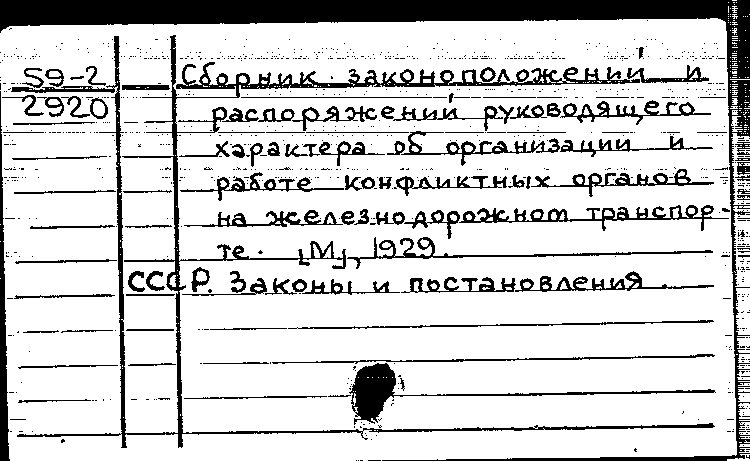 59-2 Сборник законоположений и
2920 распоряжений руководящего
характера об организации и
работе конфликтных органов
на железнодорожном транспор-
те. [М], 1929.
СССР. Законы и постановления.